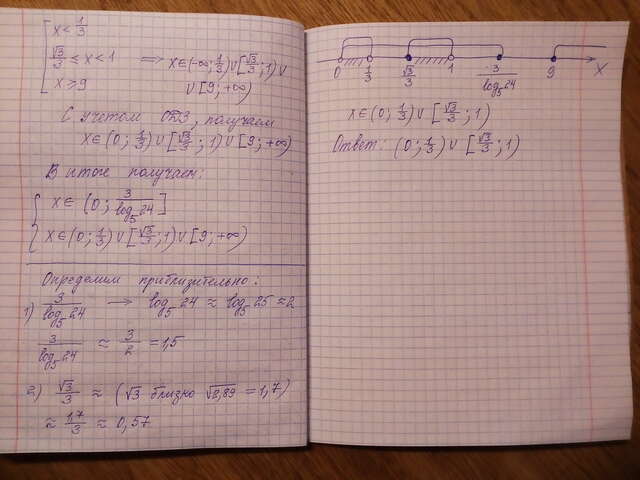 x < 1/3
√3/3 ≤ x < 1 ⟹ x∈(-∞; 1/3)∪[√3/3; 1)∪
x ≥ 9 ∪[9; +∞)
С учётом ОДЗ, получаем
x∈(0; 1/3)∪[√3/3; 1)∪[9; +∞)
В итоге получаем:
x∈(0; 3/log₅24]
x∈(0; 1/3)∪[√3/3; 1)∪[9; +∞)
Определим приблизительно:
1) 3/log₅24 → log₅24 ≈ log₅25 ≈ 2
3/log₅24 ≈ 3/2 = 1,5
2) √3/3 ≈ (√3 близко √2,89 = 1,7)
≈ 1,7/3 ≈ 0,57
0 1/3 √3/3 1 3/log₅24 9 x
x∈(0; 1/3)∪[√3/3; 1)
Ответ: (0; 1/3)∪[√3/3; 1)